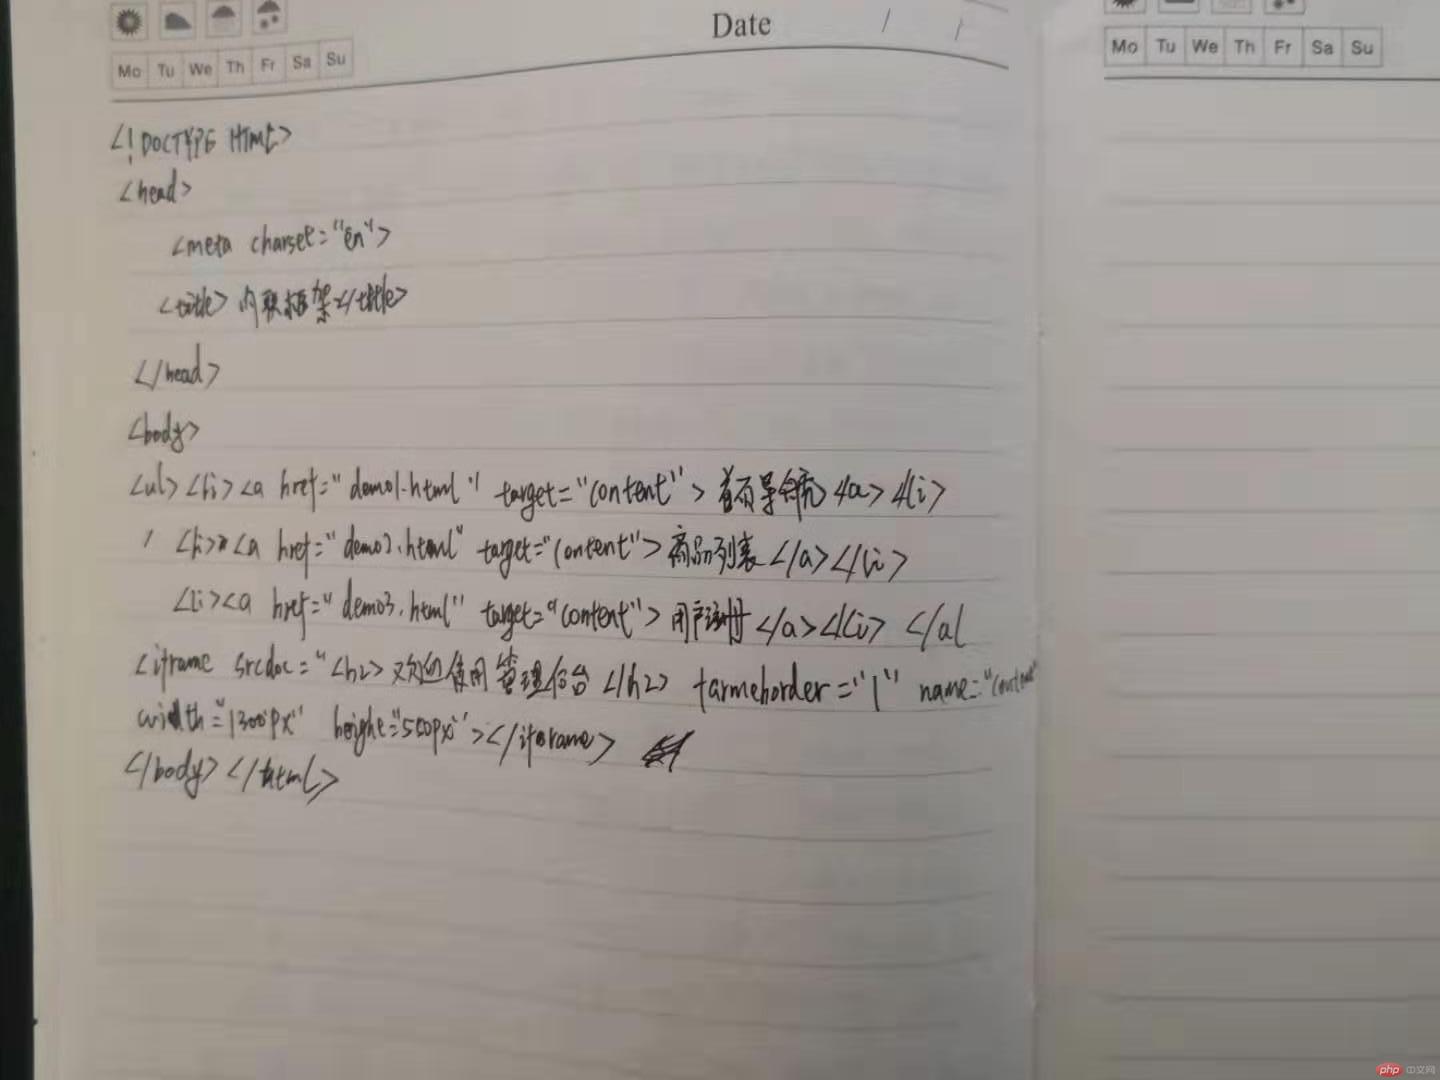 Date / /
Mo Tu We Th Fr Sa Su
Mo Tu We Th Fr Sa Su
<!DOCTYPE HTML>
<head>
<meta charset="en">
<title>内联框架</title>
</head>
<body>
<ul><li><a href="demo1.html" target="content">首页导航</a></li>
<li><a href="demo2.html" target="content">商品列表</a></li>
<li><a href="demo3.html" target="content">用户注册</a></li> </al
<iframe srcdoc="<h2>欢迎使用管理后台</h2> farmeborder="1" name="content"
width="1300px" height="500px"></iframe>
</body></html>
php 中文网